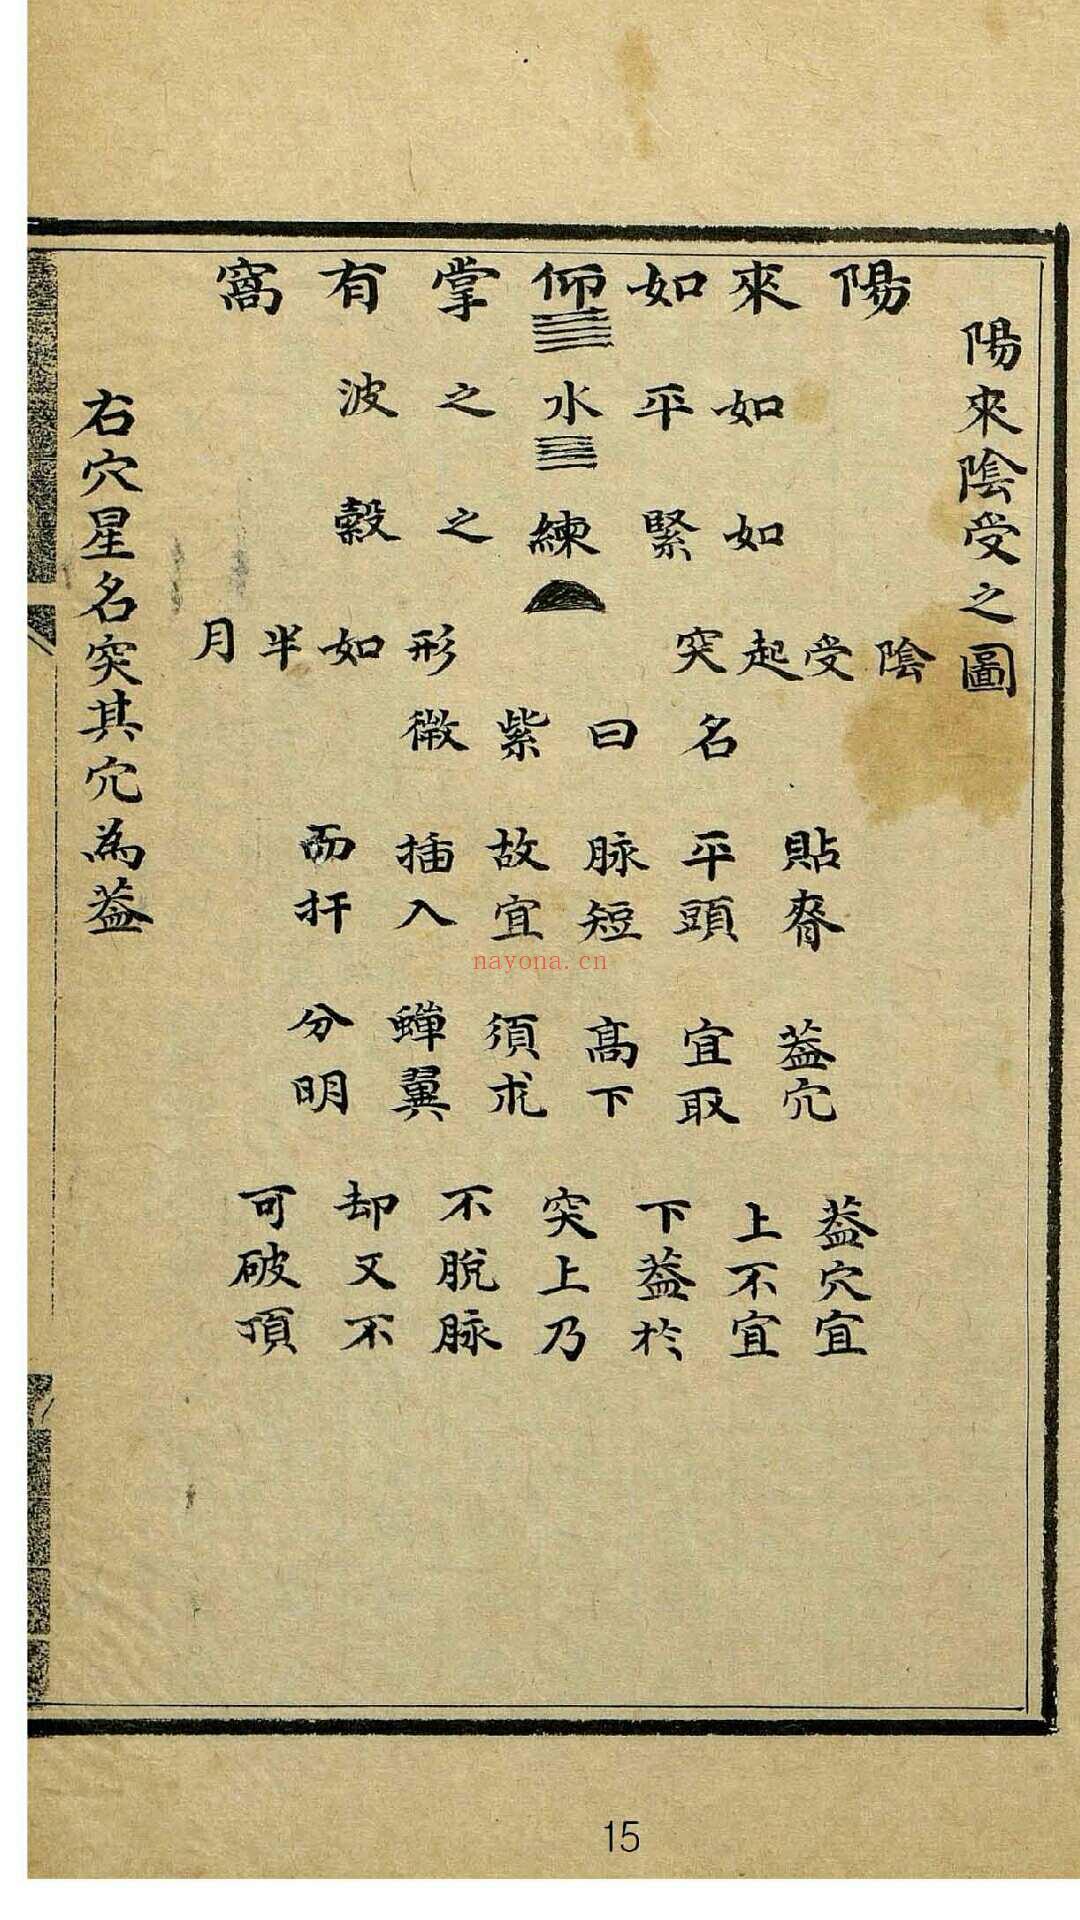 陽來陰受之圖
陽來如仰掌有窩
如平水之波
如緊練之縠
陰受起突
形如半月
名曰紫微
貼脊
平頭
脉短
故宜
插入
而扦
葢穴
宜取
高下
須求
蟬翼
分明
葢穴宜
上不宜
下葢於
突上乃
不脫脉
却又不
可破頂
右穴星名突其穴為葢
nayona.cn
15